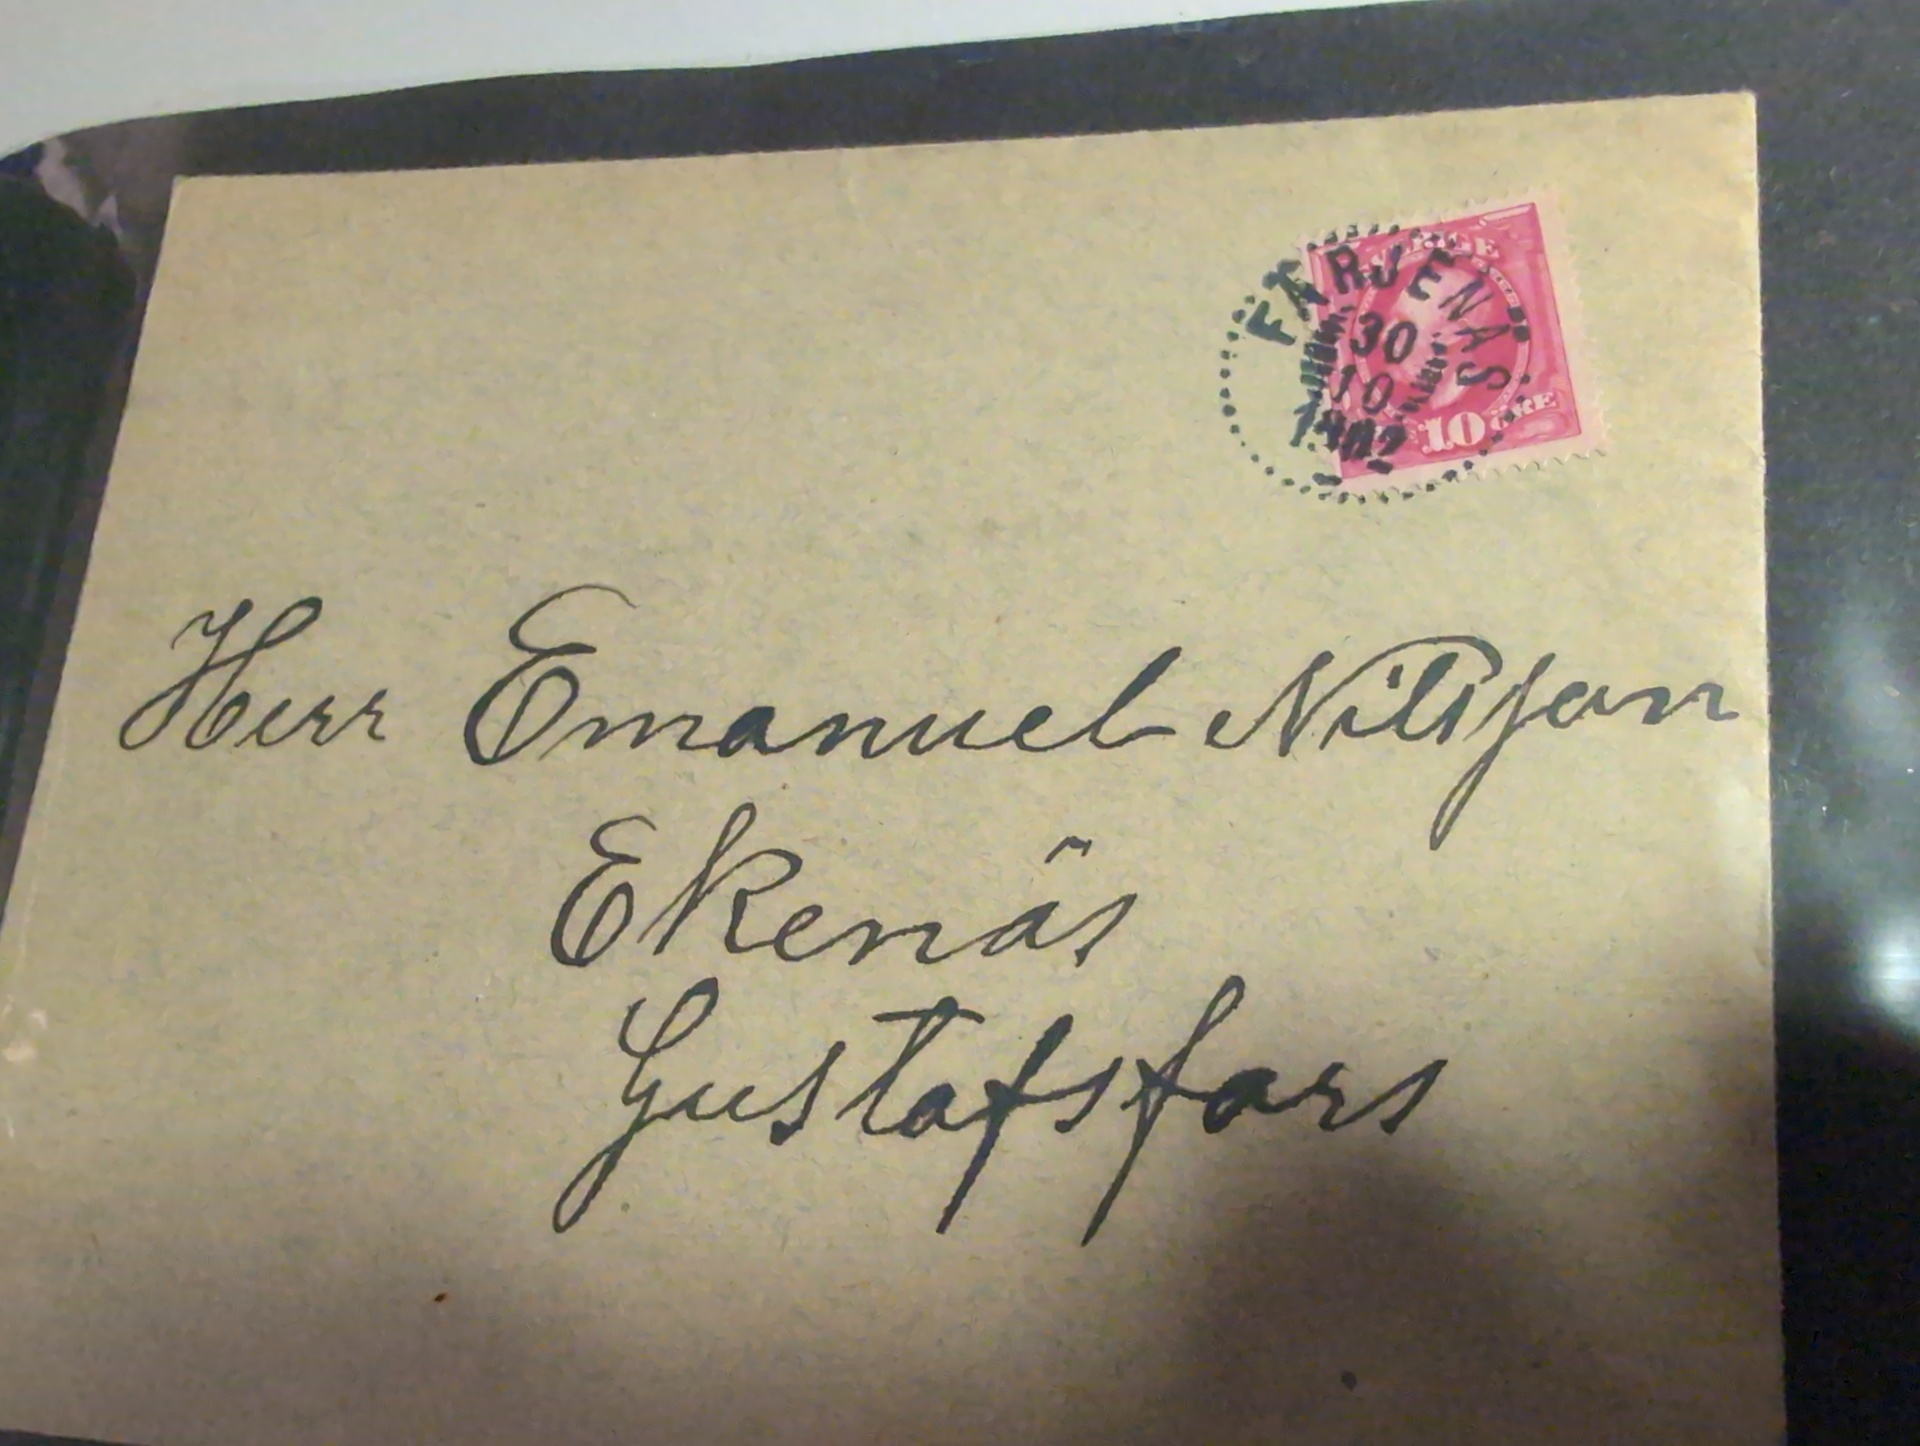 SVERIGE
FÄRJENÄS
30
10
1902
10 ÖRE
Herr Emanuel Nilsson
Ekenäs
Gustafsfors